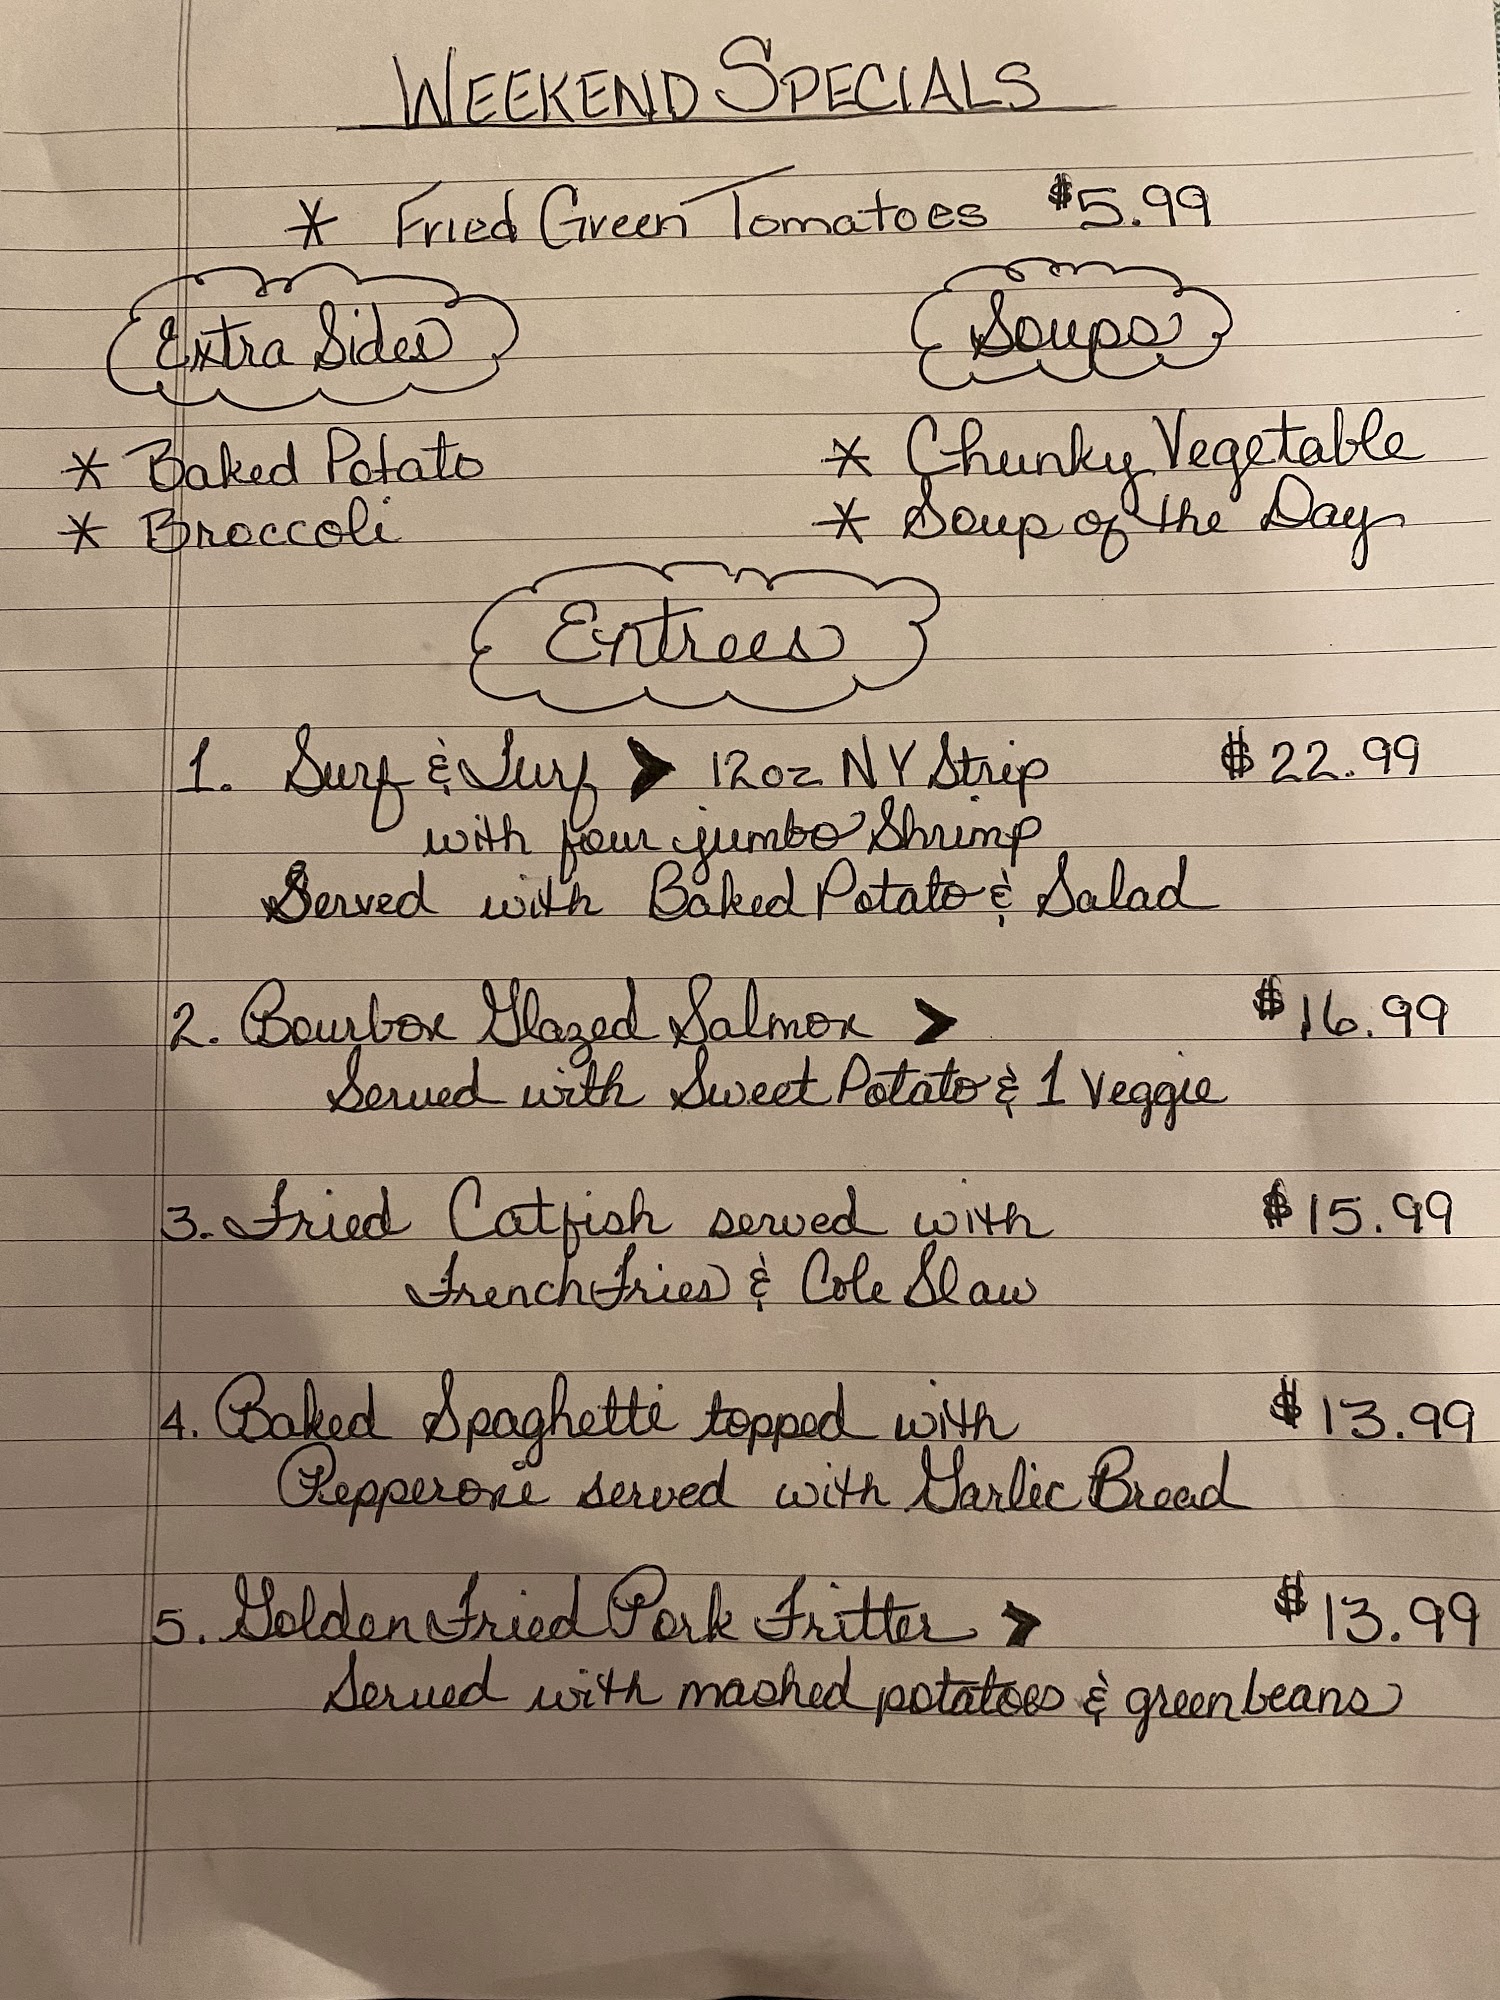 WEEKEND SPECIALS
* Fried Green Tomatoes $5.99
Extra Sides
* Baked Potato
* Broccoli
Soups
* Chunky Vegetable
* Soup of the Day
Entrees
1. Surf & Turf > 12oz NY Strip $22.99
with four jumbo Shrimp
Served with Baked Potato & Salad
2. Bourbon Glazed Salmon > $16.99
Served with Sweet Potato & 1 Veggie
3. Fried Catfish served with $15.99
French Fries & Cole Slaw
4. Baked Spaghetti topped with $13.99
Pepperoni served with Garlic Bread
5. Golden Fried Pork Fritter > $13.99
Served with mashed potatoes & green beans